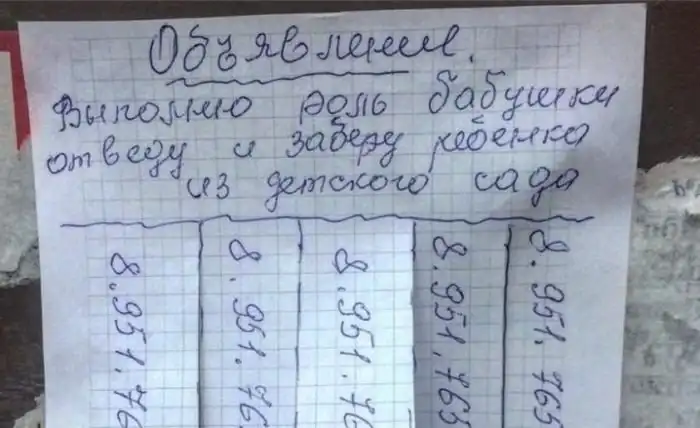 Объявление.
Выполню роль бабушки
отведу и заберу ребенка
из детского сада
8.951.76
8.951.765
8.951.76
8.951.765
8.951.765